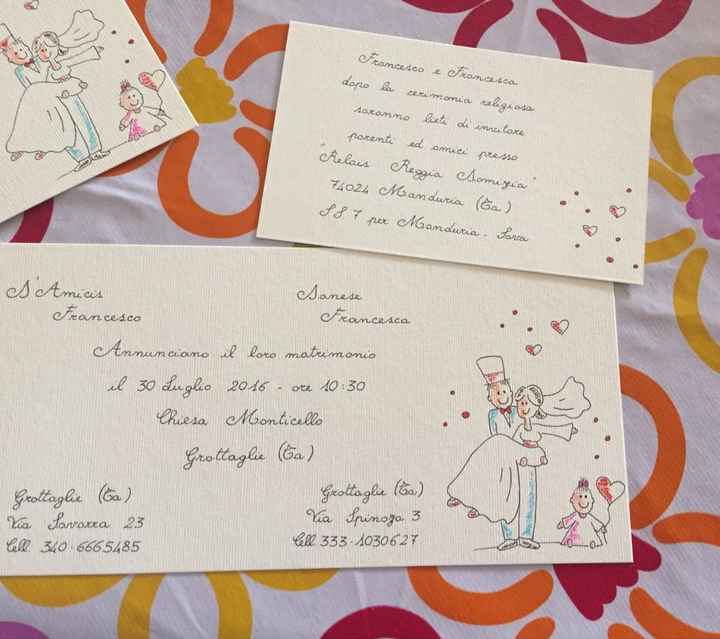 Francesco e Francesca
dopo la cerimonia religiosa
saranno lieti di invitare
parenti ed amici presso
"Relais Reggia Domizia"
74024 Manduria (Ta)
SS 7 per Manduria -
D'Amicis
Francesco
Danese
Francesca
Annunciano il loro matrimonio
il 30 Luglio 2016 - ore 10:30
Chiesa Monticello
Grottaglie (Ta)
Grottaglie (Ta)
Via 23
Cell 340-6665485
Grottaglie (Ta)
Via Spinoza 3
Cell 333-1030627